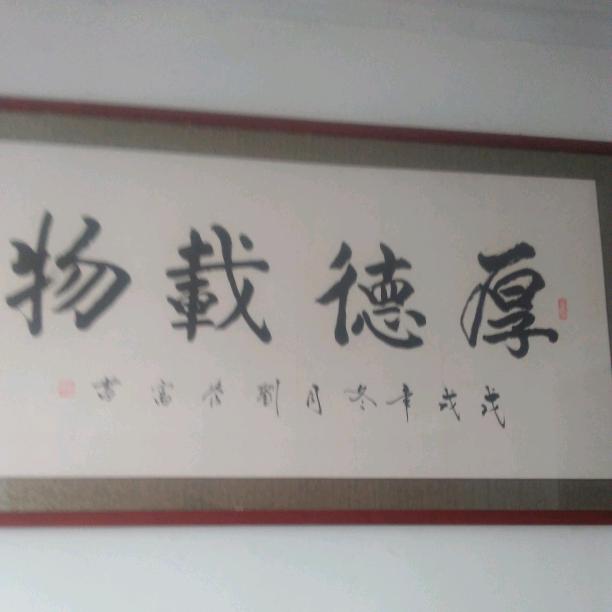 厚德載物
戊戌年冬月劉富書